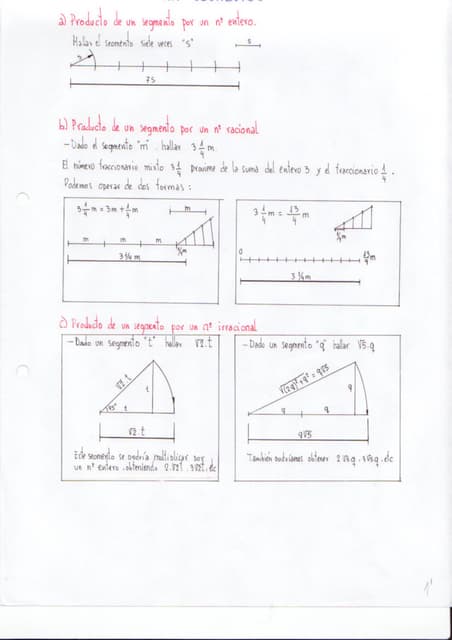 a) Producto de un segmento por un nº entero.
Hallar el segmento siete veces "s"
s
s
7s
b) Producto de un segmento por un nº racional
- Dado el segmento "m" hallar 3 1/4 m.
El número fraccionario mixto 3 1/4 proviene de la suma del entero 3 y el fraccionario 1/4.
Podemos operar de dos formas:
3 1/4 m = 3m + 1/4 m
m
m m m
1/4 m
3 1/4 m
3 1/4 m = 13/4 m
1/4 m
0
13/4 m
3 1/4 m
c) Producto de un segmento por un nº irracional
- Dado un segmento "t" hallar √2.t
√2.t
t
45°
t
√2.t
Este segmento se podría multiplicar por
un nº entero obteniendo 2.√2t. 3√2t. etc
- Dado un segmento "q" hallar √5.q
√(2q)²+q² = q√5
q
q q
q√5
También podríamos obtener 2√5q. 3√5q. etc
1'